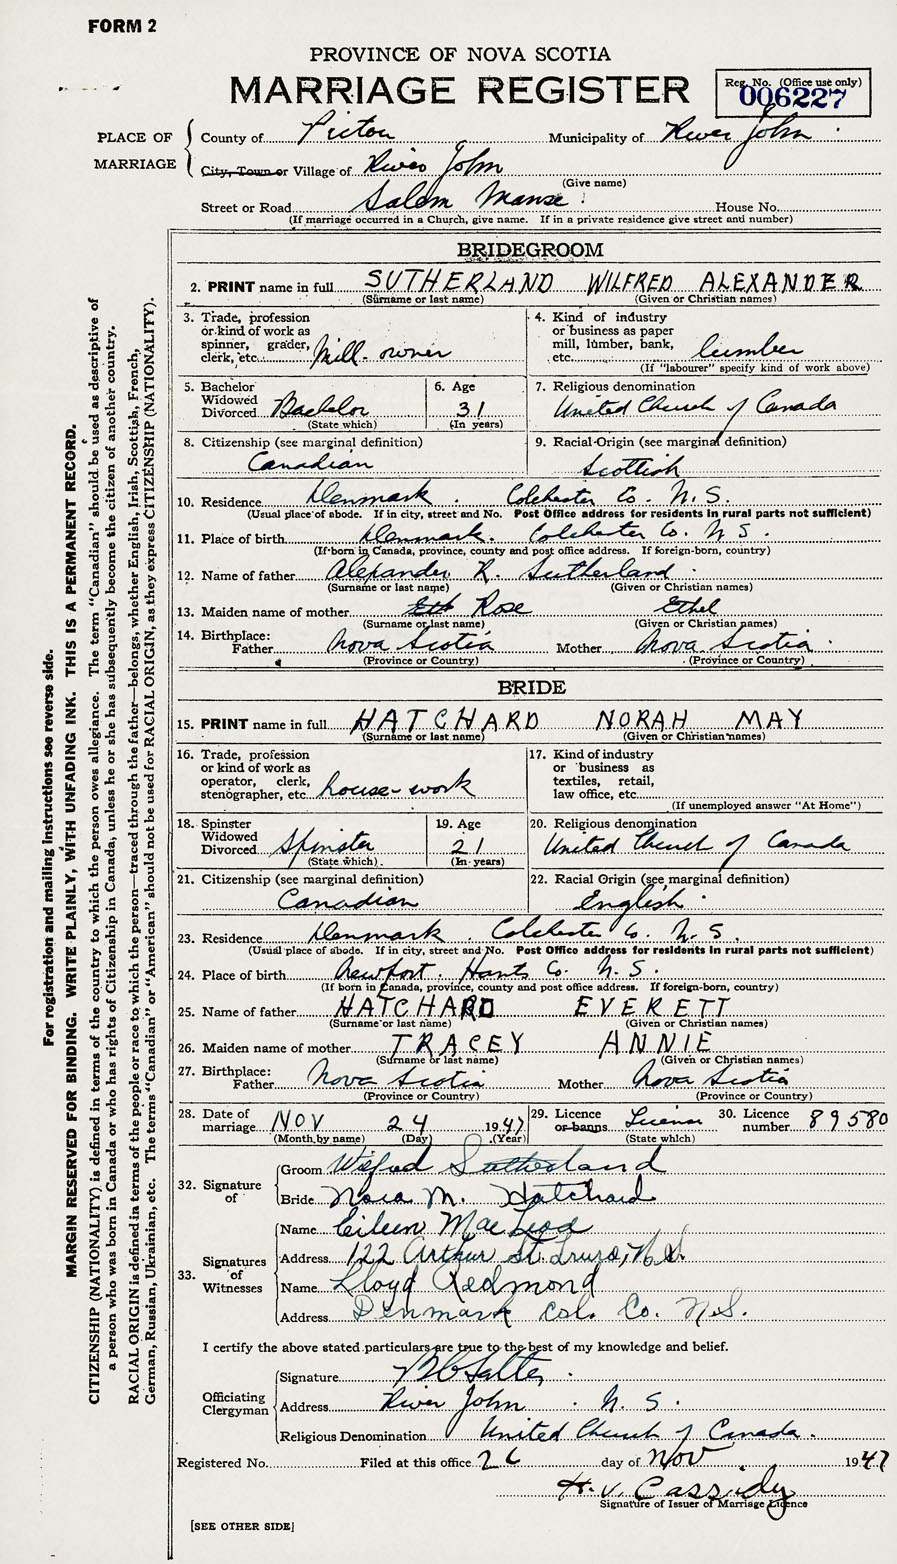 FORM 2
PROVINCE OF NOVA SCOTIA
MARRIAGE REGISTER
Reg. No. (Office use only)
006227
PLACE OF MARRIAGE
County of Pictou Municipality of River John
City, Town or Village of River John
(Give name)
Street or Road Salem Manse House No.
(If marriage occurred in a Church, give name. If in a private residence give street and number)
BRIDEGROOM
2. PRINT name in full SUTHERLAND WILFRED ALEXANDER
(Surname or last name) (Given or Christian names)
3. Trade, profession or kind of work as spinner, grader, clerk, etc. Mill-owner
4. Kind of industry or business as paper mill, lumber, bank, etc. lumber
(If "labourer" specify kind of work above)
5. Bachelor Widowed Divorced Bachelor
(State which)
6. Age 31
(In years)
7. Religious denomination
United Church of Canada
8. Citizenship (see marginal definition)
Canadian
9. Racial Origin (see marginal definition)
Scottish
10. Residence Denmark. Colchester Co. N.S.
(Usual place of abode. If in city, street and No. Post Office address for residents in rural parts not sufficient)
11. Place of birth Denmark. Colchester Co. N S.
(If born in Canada, province, county and post office address. If foreign-born, country)
12. Name of father Alexander R. Sutherland
(Surname or last name) (Given or Christian names)
13. Maiden name of mother Rose Ethel
(Surname or last name) (Given or Christian names)
14. Birthplace:
Father Nova Scotia Mother Nova Scotia
(Province or Country) (Province or Country)
BRIDE
15. PRINT name in full HATCHARD NORAH MAY
(Surname or last name) (Given or Christian names)
16. Trade, profession or kind of work as operator, clerk, stenographer, etc. house-work
17. Kind of industry or business as textiles, retail, law office, etc.
(If unemployed answer "At Home")
18. Spinster Widowed Divorced Spinster
(State which)
19. Age 21
(In years)
20. Religious denomination
United Church of Canada
21. Citizenship (see marginal definition)
Canadian
22. Racial Origin (see marginal definition)
English
23. Residence Denmark. Colchester Co. N.S.
(Usual place of abode. If in city, street and No. Post Office address for residents in rural parts not sufficient)
24. Place of birth Newport. Hants Co. N.S.
(If born in Canada, province, county and post office address. If foreign-born, country)
25. Name of father HATCHARD EVERETT
(Surname or last name) (Given or Christian names)
26. Maiden name of mother TRACEY ANNIE
(Surname or last name) (Given or Christian names)
27. Birthplace:
Father Nova Scotia Mother Nova Scotia
(Province or Country) (Province or Country)
28. Date of marriage NOV 24 1947
(Month by name) (Day) (Year)
29. Licence or banns License
(State which)
30. Licence number 89580
32. Signature of
Groom Wilfred Sutherland
Bride Nora M. Hatchard
33. Signatures of Witnesses
Name Eileen MacLeod
Address 122 Arthur St. Truro, N.S.
Name Lloyd Redmond
Address Denmark Col. Co. N.S.
I certify the above stated particulars are true to the best of my knowledge and belief.
Officiating Clergyman
Signature
Address River John N.S.
Religious Denomination United Church of Canada.
Registered No. Filed at this office 26 day of Nov 1947
H. V. Cassidy
Signature of Issuer of Marriage Licence
[SEE OTHER SIDE]
For registration and mailing instructions see reverse side.
MARGIN RESERVED FOR BINDING. WRITE PLAINLY, WITH UNFADING INK. THIS IS A PERMANENT RECORD.
CITIZENSHIP (NATIONALITY) is defined in terms of the country to which the person owes allegiance. The term "Canadian" should be used as descriptive of
a person who was born in Canada or who has rights of Citizenship in Canada, unless he or she has subsequently become the citizen of another country.
RACIAL ORIGIN is defined in terms of the people or race to which the person—traced through the father—belongs, whether English, Irish, Scottish, French,
German, Russian, Ukrainian, etc. The terms "Canadian" or "American" should not be used for RACIAL ORIGIN, as they express CITIZENSHIP (NATIONALITY).